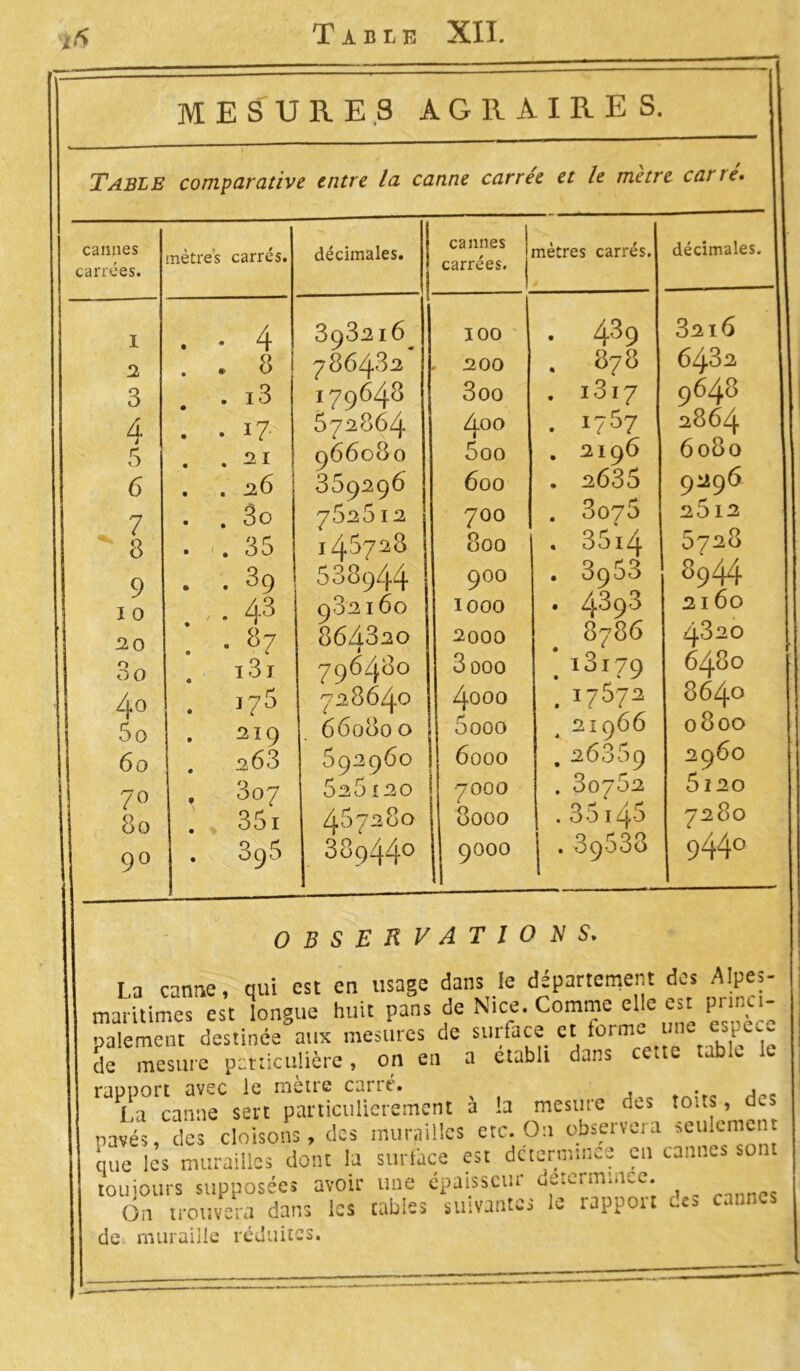 16 TABLE XII.
MESURES AGRAIRES.
TABLE comparative entre la canne carrée et le mètre carré.
cannes carrées. mètres carrés. décimales. cannes carrées. mètres carrés. décimales.
1 . . 4 393216 100 . 439 3216
2 . . 8 786432 200 . 878 6432
3 . . 13 179648 300 . 1317 9648
4 . . 17 572864 400 . 1757 2864
5 . . 21 966080 500 . 2196 6080
6 . . 26 359296 600 . 2635 9296
7 . . 30 752512 700 . 3075 2512
8 . . 35 145728 800 . 3514 5728
9 . . 39 538944 900 . 3953 8944
10 . . 43 932160 1000 . 4393 2160
20 . . 87 864320 2000 . 8786 4320
30 . 131 796480 3000 . 13179 6480
40 . 175 728640 4000 . 17572 8640
50 . 219 660800 5000 . 21966 0800
60 . 263 592960 6000 . 26359 2960
70 . 307 525120 7000 . 30752 5120
80 . 351 457280 8000 . 35145 7280
90 . 395 389440 9000 . 39538 9440
OBSERVATIONS.
La canne, qui est en usage dans le département des Alpes-
maritimes est longue huit pans de Nice. Comme elle est princi-
palement destinée aux mesures de surface et forme une espèce
de mesure particulière, on en a établi dans cette table le
rapport avec le mètre carré.
La canne sert particulierement à la mesure des toits, des
pavés, des cloisons, des murailles etc. On observera seulement
que les murailles dont la surface est déterminée en cannes sont
toujours supposées avoir une épaisseur déterminée.
On trouvera dans les tables suivantes le rapport des cannes
de muraille réduites.